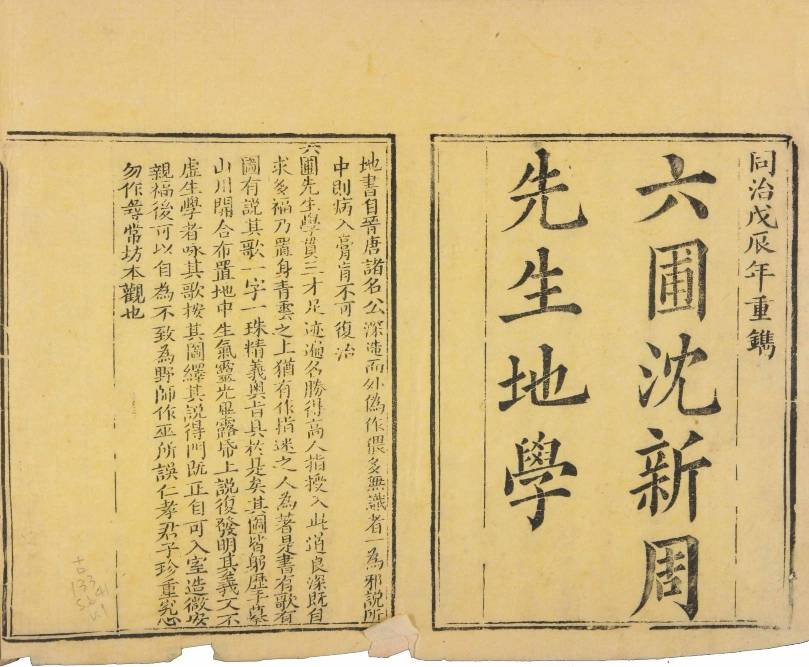 同治戊辰年重鐫
六圃沈新周
先生地學
地書自晉唐諸名公深造而外偽作偎多無識者一為邪說所
中則病入膏肓不可復治
六圃先生學貫三才足迹遍名勝得高人指授入此道良深既自
求多福乃置身青雲之上猶有作指迷之人為著是書有歌有
圖有說其歌一字一珠精義奥旨具於是矣其圖皆躬歷手摹
山川開合布置地中生氣靈光畢露帋上說復發明其義又不
虛生學者咏其歌按其圖繹其說得門既正自可入室造微安
親福後可以自為不致為野師作巫所誤仁孝君子珍重究心
勿作尋常坊本觀也
古
133
41
V.1